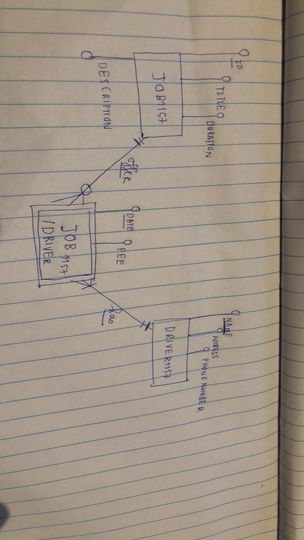 ID
TITLE
DURATION
JOB1157
DESCRIPTION
offer
DATE
FEE
JOB 1157
/DRIVER
has
NAME
ADDRESS
PHONE NUMBER
DRIVER1157